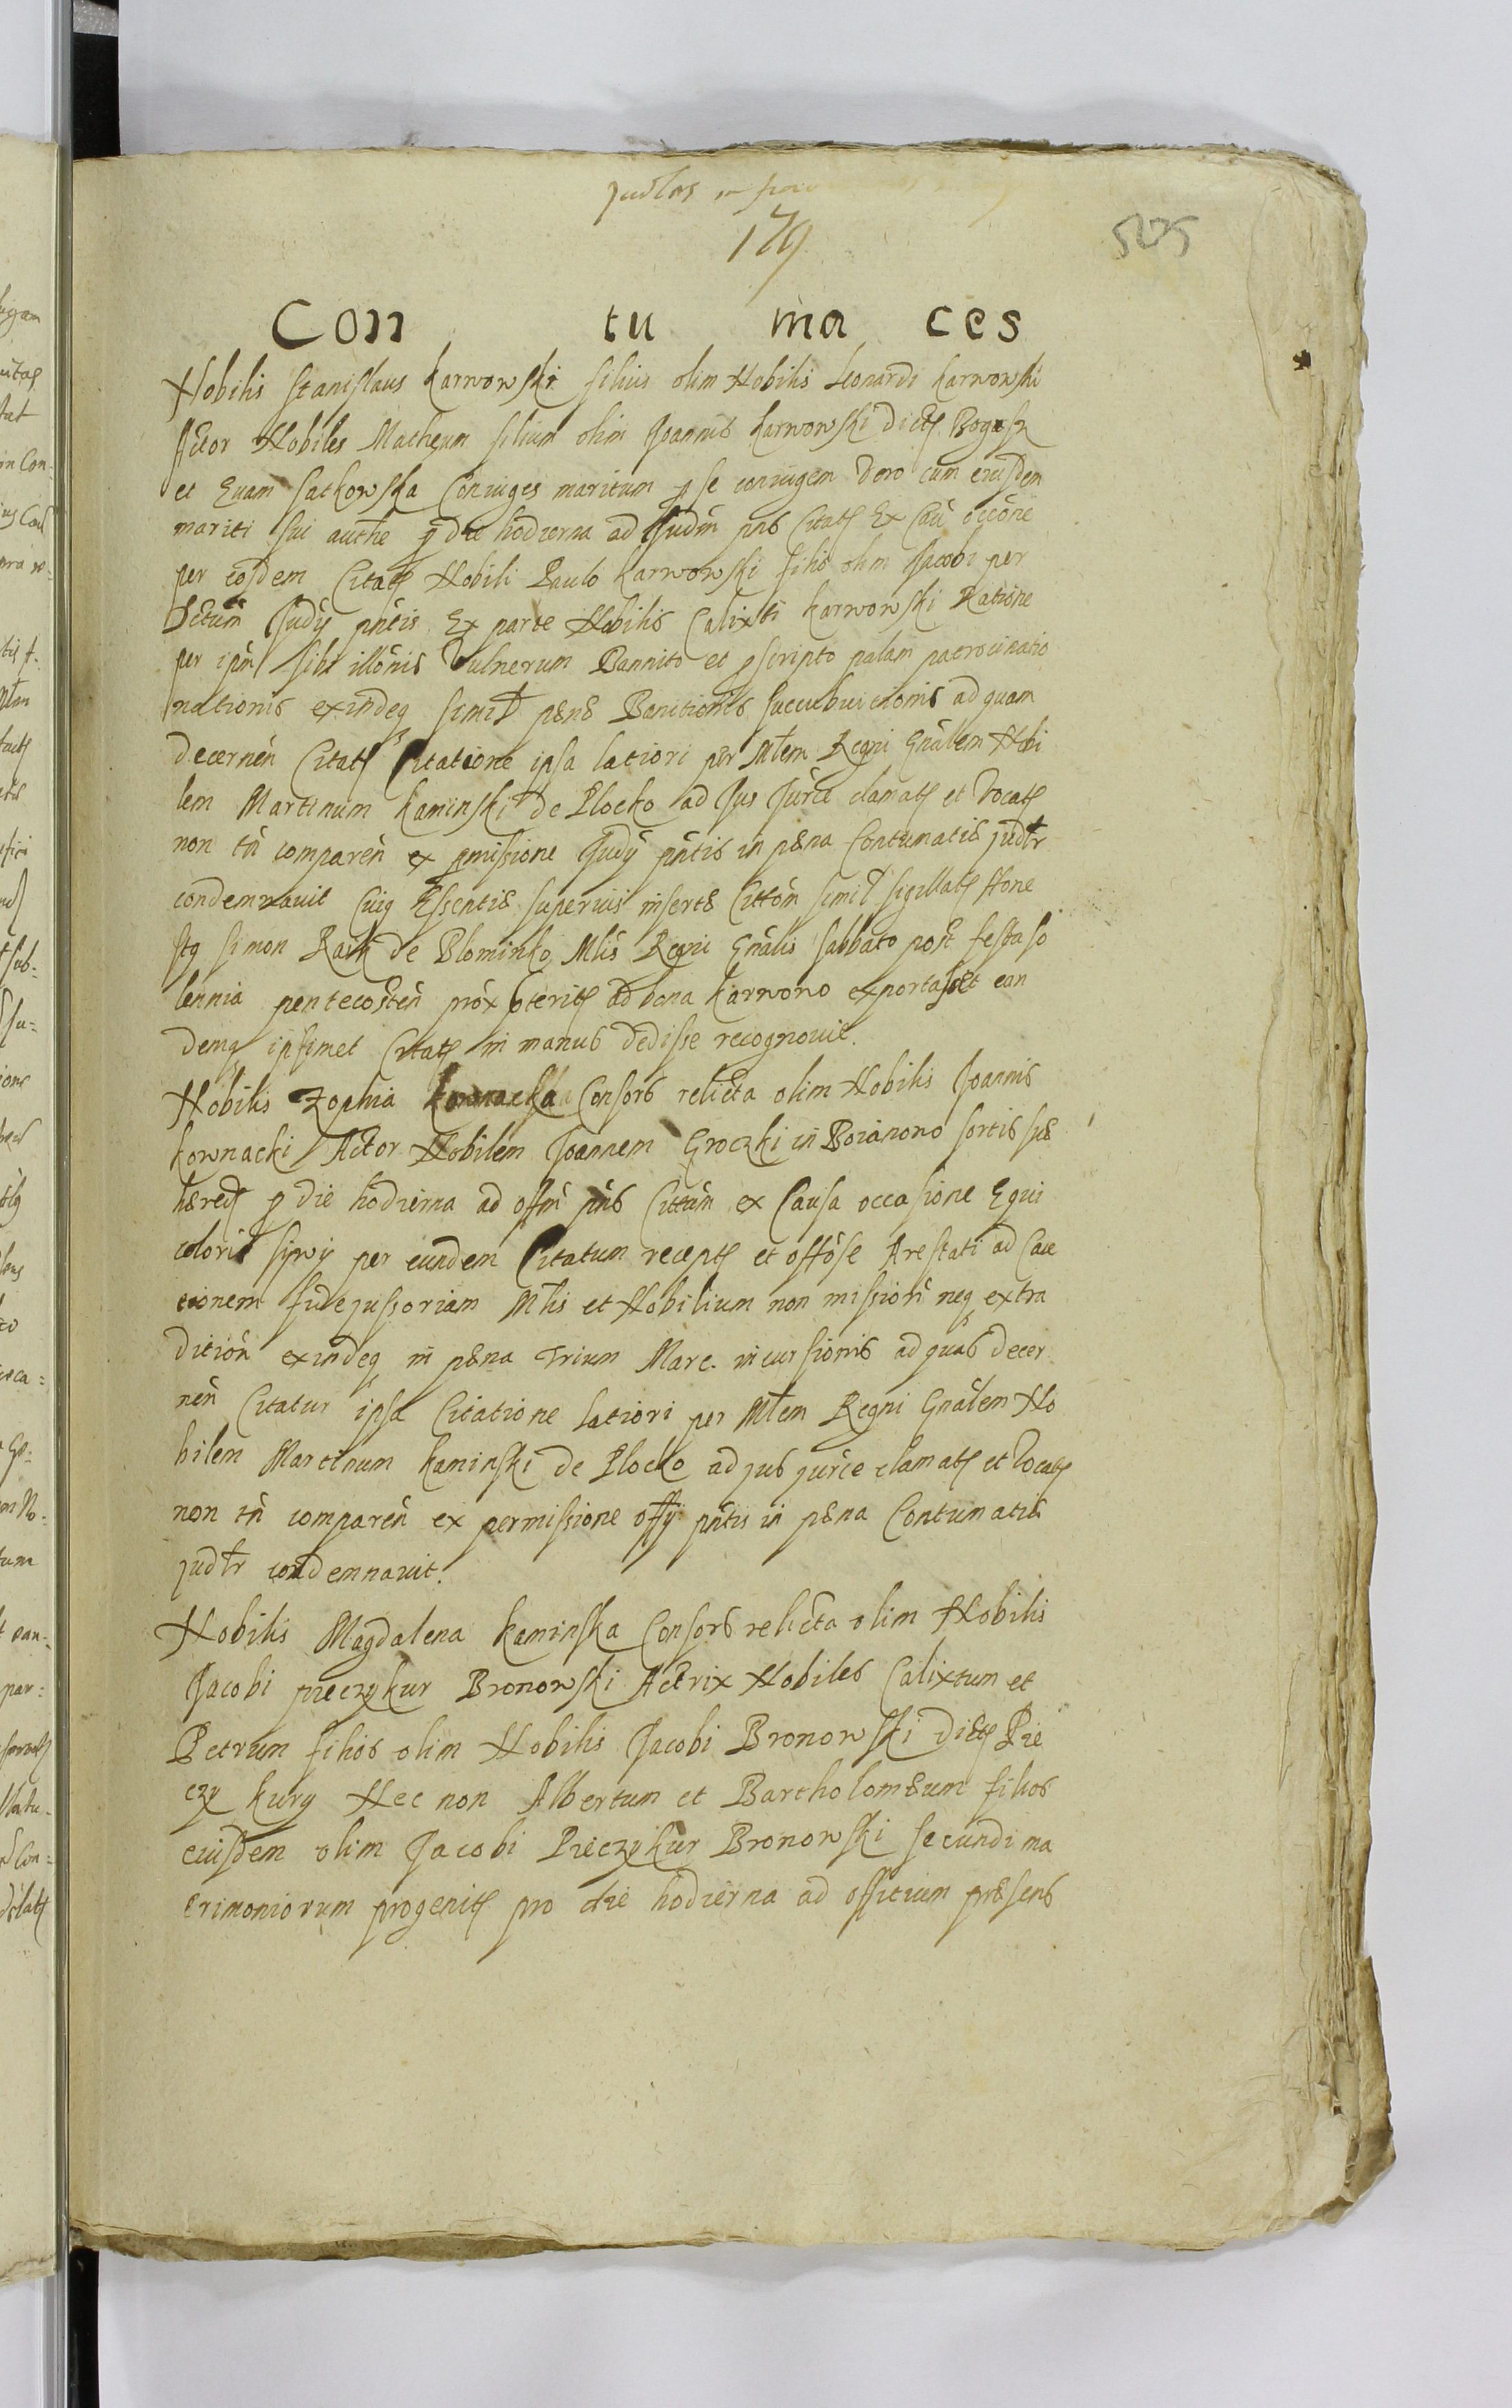 179
525
Con tu ma ces
Nobilis Stanislaus Karwowski filius olim Nobilis Leonardi Karwowski
Actor Nobiles Matheum filium olim Joannis Karwowski dict Bogusz
et Evam Satkowska Coniuges maritum p se coniugem vero cum eiusdem
mariti sui authe p die hodierna ad Judm pns Citat Ex Cau occone
per eosdem Citat Nobili Paulo Karwowski filio olim Jacobi per
Judy pntis Ex parte Nobilis Calixti Karwowski Ratione
per ipm sibi illonis Vulnerum Bannito et pscripto palam patrocinatio
nationis exindeq simil pænæ Banitionis succubuitionis ad quam
decernen Citat Citatione ipsa latiori per Mlem Regni Gnalem Nobi
lem Martinum Kaminski de Plocko ad Jus Jurce clamat et vocat
non tn comparen ex pmissione Judy pntis in pæna Contumatiæ judlr
condemnavit Cuiq Essentiæ superius insertæ Citton simil sigillat
stq Simon de Plominko Mlis Regni Gnalis Sabbato post festa so
lennia pentecosten prox pterit ad bona Karwowo exportasse et ean
demq ipsimet Citat in manus dedisse recognovit.
Nobilis Zophia Kownacka Consors relicta olim Nobilis Joannis
Kownacki Actor Nobilem Joannem Groczki in Boianowo sortis suæ
hæred p die hodierna ad offm pns Cittum ex Causa occasione Equi
coloris siwy per eundem Citatum recept et offose Arestati ad Cau
tionem fidejussoriam Mlis et Nobilium non mission neq extra
dition exindeq in pæna trium Marc. incursionis ad quas decer
nen Citatur ipsa Citatione latiori per Mlem Regni Gnalem No
bilem Martinum Kaminski de Plocko ad jus jurce clamat et vocat
non tn comparen ex permissione offy pntis in pæna Contumatiæ
judlr condemnavit.
Nobilis Magdalena Kaminska Consors relicta olim Nobilis
Jacobi pieczykur Bronowski Actrix Nobiles Calixtum et
Petrum filios olim Nobilis Jacobi Bronowski dict Pie
czy kury Nec non Albertum et Bartholomæum filios
eiusdem olim Jacobi Pieczykur Bronowski secundi ma
trimoniorum progenit pro die hodierna ad officium præsens